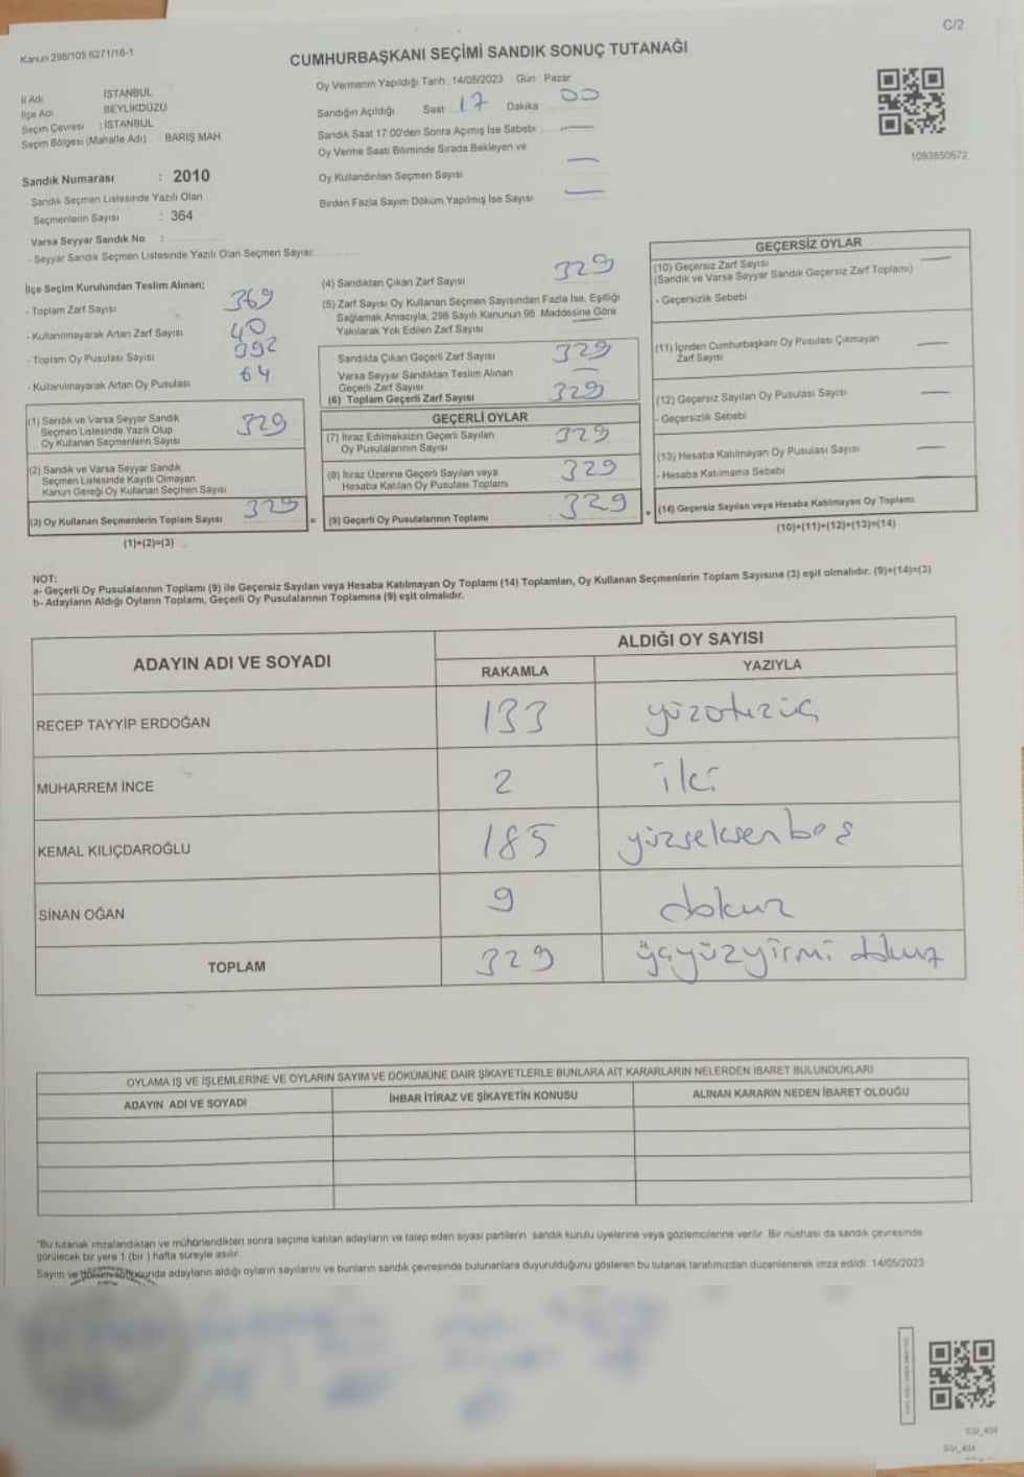 C/2
Kanun 298/105 6271/16-1
CUMHURBAŞKANI SEÇİMİ SANDIK SONUÇ TUTANAĞI
Oy Vermenin Yapıldığı Tarih : 14/05/2023 Gün Pazar
İl Adı : İSTANBUL
İlçe Adı : BEYLİKDÜZÜ
Seçim Çevresi : İSTANBUL
Seçim Bölgesi (Mahalle Adı) BARIŞ MAH.
Sandığın Açıldığı Saat 17 Dakika 00
Sandık Saat 17:00'den Sonra Açılmış İse Sebebi —
Oy Verme Saati Bitiminde Sırada Bekleyen ve
Oy Kullandırılan Seçmen Sayısı —
Birden Fazla Sayım Döküm Yapılmış İse Sayısı —
1093650672
Sandık Numarası : 2010
Sandık Seçmen Listesinde Yazılı Olan
Seçmenlerin Sayısı : 364
Varsa Seyyar Sandık No :
- Seyyar Sandık Seçmen Listesinde Yazılı Olan Seçmen Sayısı:
İlçe Seçim Kurulundan Teslim Alınan;
- Toplam Zarf Sayısı 369
- Kullanılmayarak Artan Zarf Sayısı 40
- Toplam Oy Pusulası Sayısı 392
- Kullanılmayarak Artan Oy Pusulası 64
(1) Sandık ve Varsa Seyyar Sandık
Seçmen Listesinde Yazılı Olup
Oy Kullanan Seçmenlerin Sayısı 329
(2) Sandık ve Varsa Seyyar Sandık
Seçmen Listesinde Kayıtlı Olmayan
Kanun Gereği Oy Kullanan Seçmen Sayısı
(3) Oy Kullanan Seçmenlerin Toplam Sayısı 329
(1)+(2)=(3)
(4) Sandıktan Çıkan Zarf Sayısı 329
(5) Zarf Sayısı Oy Kullanan Seçmen Sayısından Fazla İse, Eşitliği
Sağlamak Amacıyla, 298 Sayılı Kanunun 98. Maddesine Göre
Yakılarak Yok Edilen Zarf Sayısı —
Sandıkta Çıkan Geçerli Zarf Sayısı 329
Varsa Seyyar Sandıktan Teslim Alınan
Geçerli Zarf Sayısı —
(6) Toplam Geçerli Zarf Sayısı 329
GEÇERLİ OYLAR
(7) İtiraz Edilmeksizin Geçerli Sayılan
Oy Pusulalarının Sayısı 329
(8) İtiraz Üzerine Geçerli Sayılan veya
Hesaba Katılan Oy Pusulası Toplamı 329
= (9) Geçerli Oy Pusulalarının Toplamı 329
GEÇERSİZ OYLAR
(10) Geçersiz Zarf Sayısı —
(Sandık ve Varsa Seyyar Sandık Geçersiz Zarf Toplamı)
- Geçersizlik Sebebi
(11) İçinden Cumhurbaşkanı Oy Pusulası Çıkmayan
Zarf Sayısı —
(12) Geçersiz Sayılan Oy Pusulası Sayısı —
- Geçersizlik Sebebi
(13) Hesaba Katılmayan Oy Pusulası Sayısı —
- Hesaba Katılmama Sebebi
+ (14) Geçersiz Sayılan veya Hesaba Katılmayan Oy Toplamı
(10)+(11)+(12)+(13)=(14)
NOT:
a- Geçerli Oy Pusulalarının Toplamı (9) ile Geçersiz Sayılan veya Hesaba Katılmayan Oy Toplamı (14) Toplamları, Oy Kullanan Seçmenlerin Toplam Sayısına (3) eşit olmalıdır. (9)+(14)=(3)
b- Adayların Aldığı Oyların Toplamı, Geçerli Oy Pusulalarının Toplamına (9) eşit olmalıdır.
ADAYIN ADI VE SOYADI ALDIĞI OY SAYISI
RAKAMLA YAZIYLA
RECEP TAYYİP ERDOĞAN 133 yüzotuzüç
MUHARREM İNCE 2 iki
KEMAL KILIÇDAROĞLU 185 yüzseksenbeş
SİNAN OĞAN 9 dokuz
TOPLAM 329 üçyüzyirmi dokuz
OYLAMA İŞ VE İŞLEMLERİNE VE OYLARIN SAYIM VE DÖKÜMÜNE DAİR ŞİKAYETLERLE BUNLARA AİT KARARLARIN NELERDEN İBARET BULUNDUKLARI
ADAYIN ADI VE SOYADI İHBAR İTİRAZ VE ŞİKAYETİN KONUSU ALINAN KARARIN NEDEN İBARET OLDUĞU
"Bu tutanak imzalandıktan ve mühürlendikten sonra seçime katılan adayların ve talep eden siyasi partilerin sandık kurulu üyelerine veya gözlemcilerine verilir. Bir nüshası da sandık çevresinde
görülecek bir yere 1 (bir) hafta süreyle asılır.
Sayım ve adayların aldığı oyların sayılarını ve bunların sandık çevresinde bulunanlara duyurulduğunu gösteren bu tutanak tarafımızdan düzenlenerek imza edildi. 14/05/2023